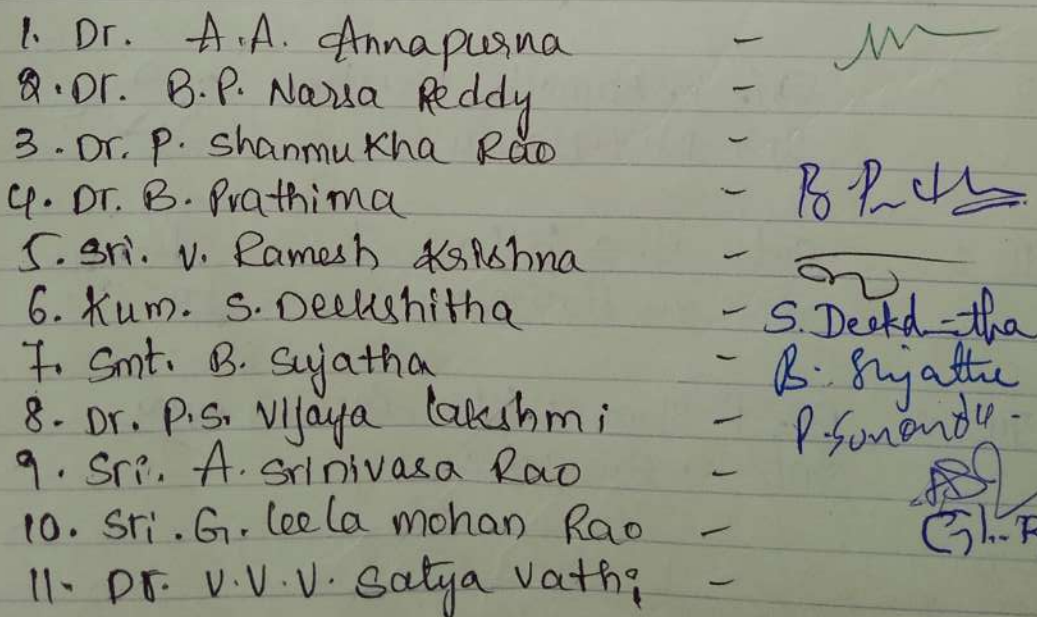 1. Dr. A.A. Annapurna -
2. Dr. B.P. Narsa Reddy -
3. Dr. P. Shanmukha Rao -
4. Dr. B. Prathima -
5. Sri. V. Ramesh Krishna -
6. Kum. S. Deekshitha - S. Deekd-tha
7. Smt. B. Sujatha - B. Sujatha
8. Dr. P.S. Vijaya Lakshmi - P. Sunanda
9. Sri. A. Srinivasa Rao -
10. Sri. G. Leela mohan Rao -
11. Dr. V.V.V. Satya Vathi -